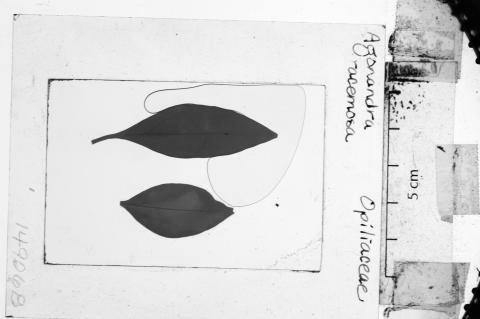 Agonandra
racemosa
Opiliaceae
5 cm